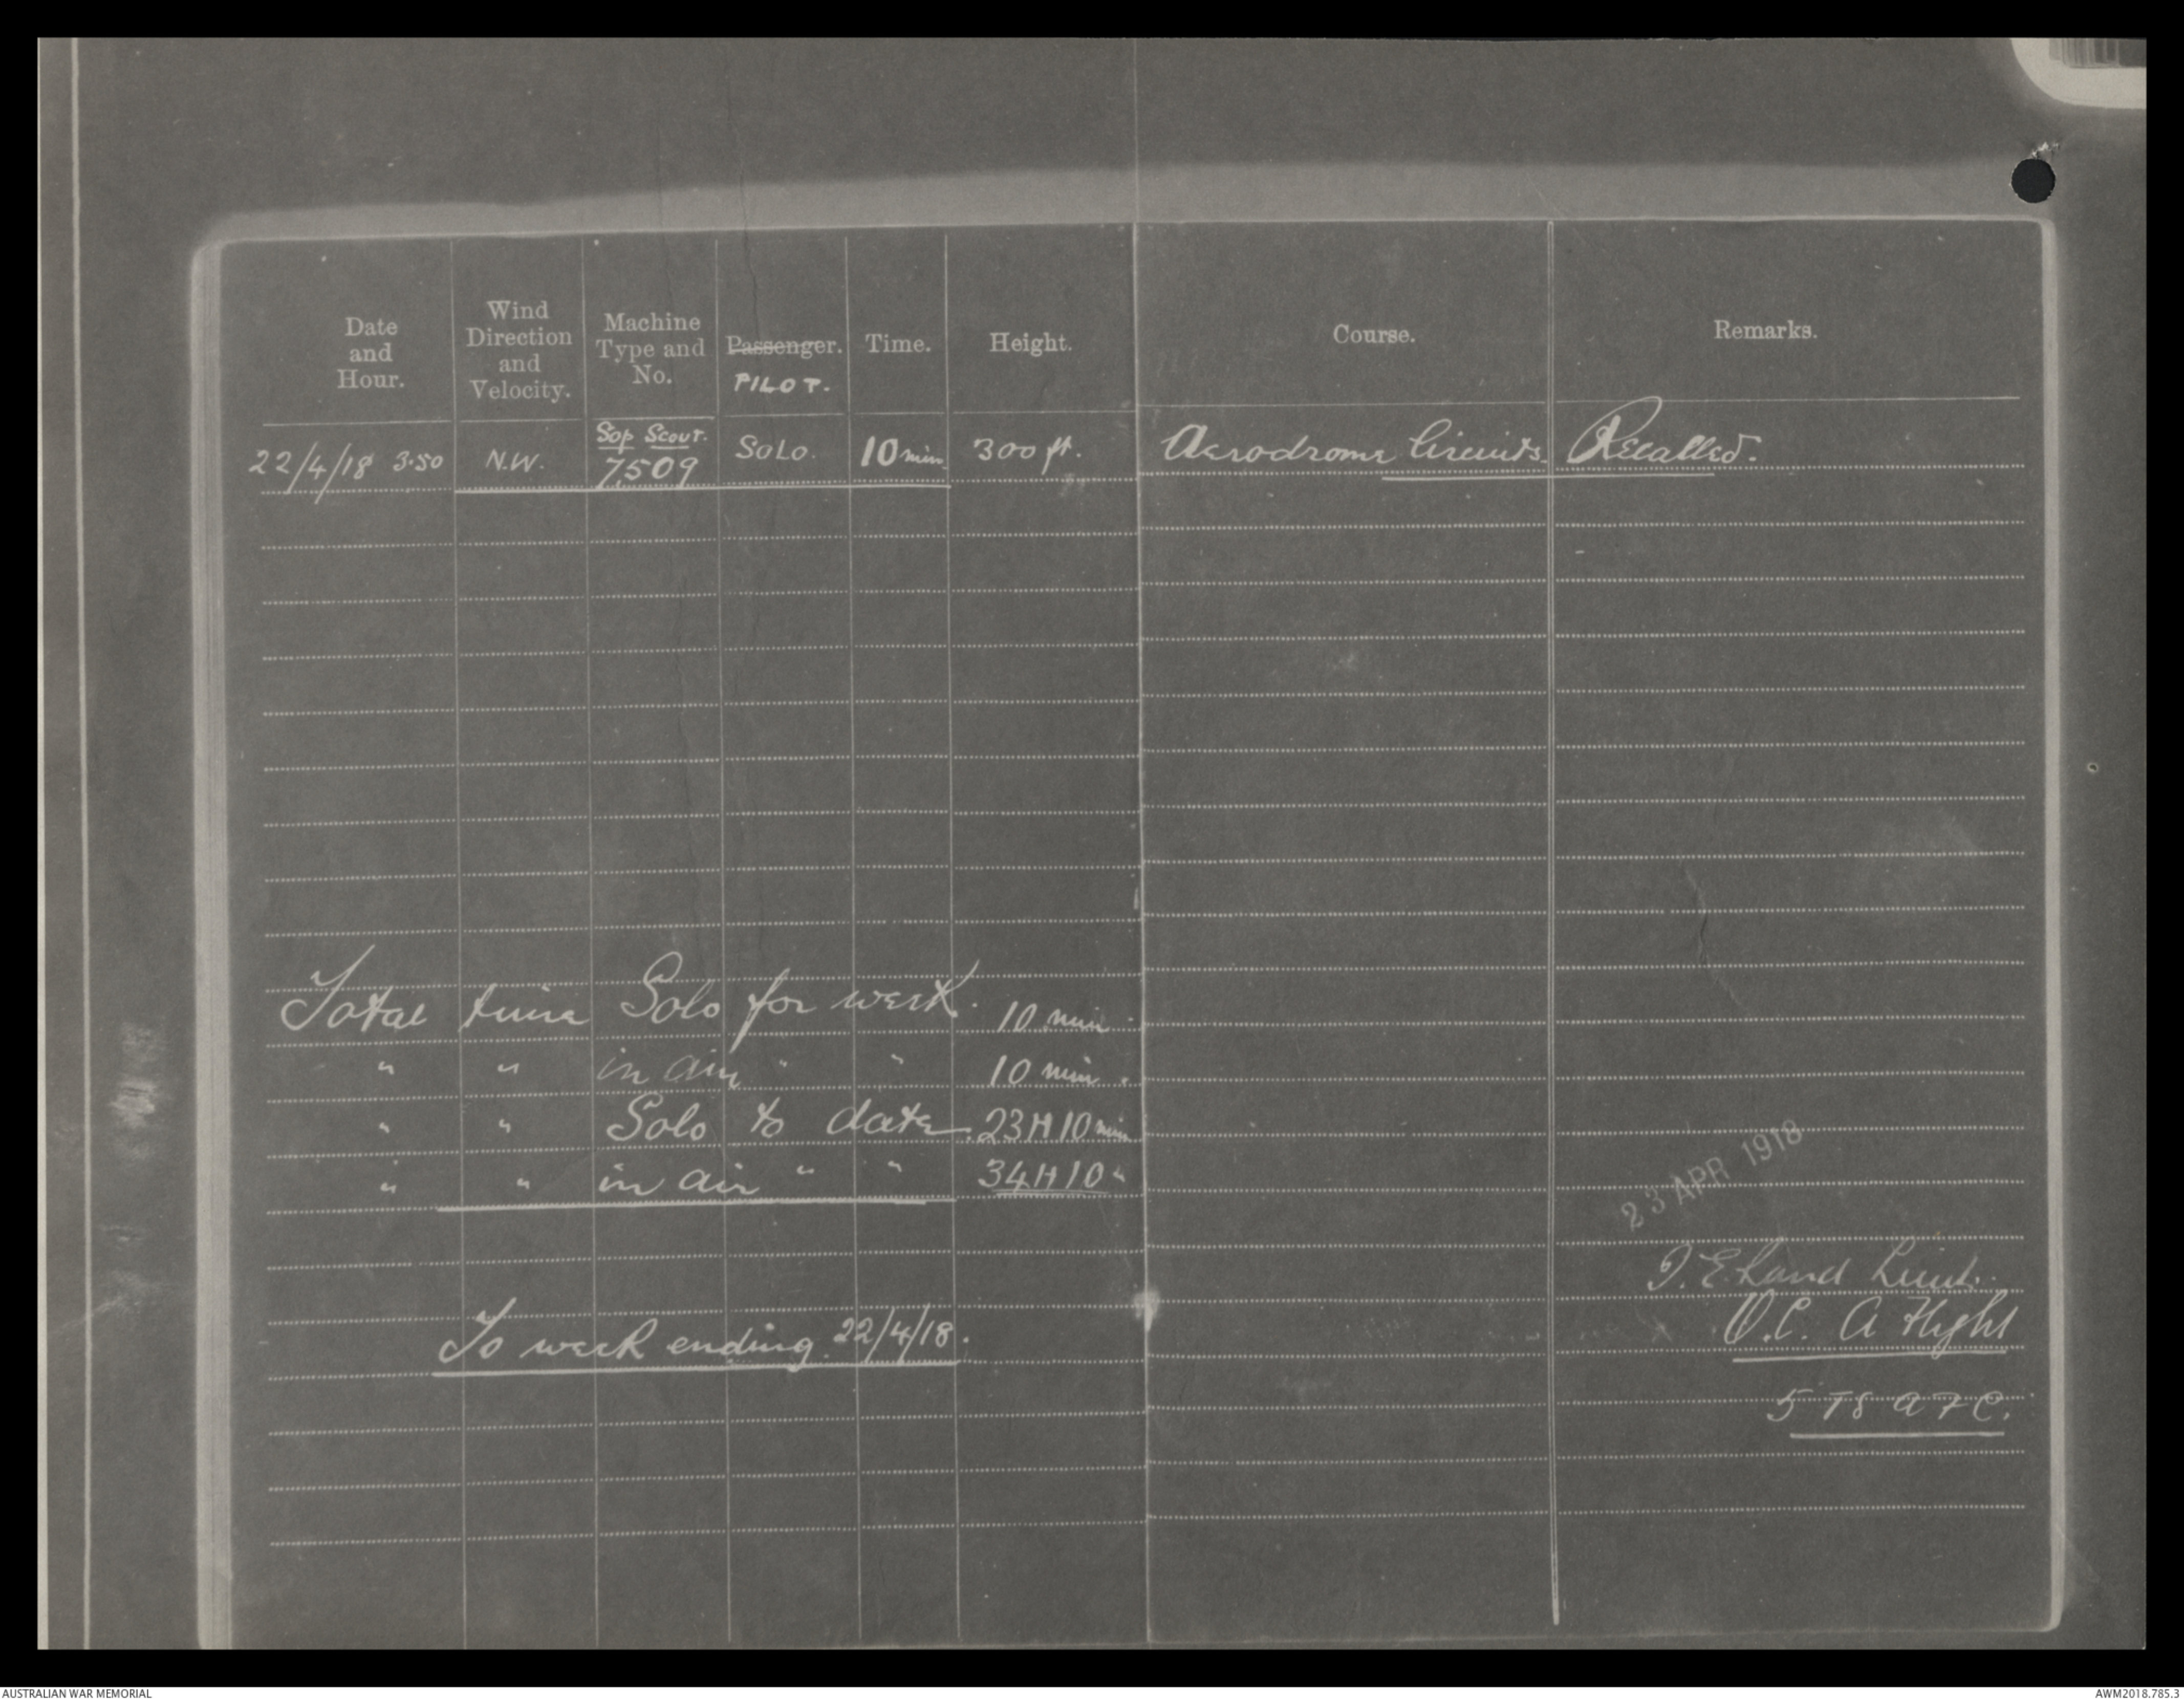 Date and Hour.
Wind Direction and Velocity.
Machine Type and No.
Passenger. PILOT.
Time.
Height.
Course.
Remarks.
22/4/18 3.50 N.W. Sop Scout. 7509 SOLO. 10 min 300 ft. Aerodrome Circuits. Recalled.
Total time Solo for week. 10 min.
" " in air " " 10 min.
" " Solo to date. 23H 10 min
" " in air " " 34H 10 "
23 APR 1918
Lieut.
O.C. A Flight
To week ending. 22/4/18.
5 TS A F C.
AUSTRALIAN WAR MEMORIAL
AWM2018.785.3